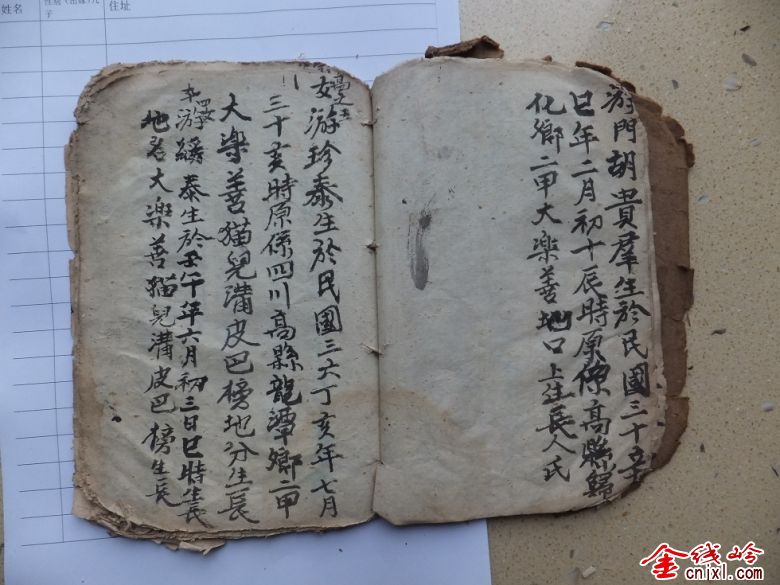 姓名
住址
游門胡貴羣生於民國三十辛
巳年二月初十辰時原係高縣歸
化鄉二甲大樂善地口上生長人氏
女游珍泰生於民國三六丁亥年七月
三十亥時原係四川高縣龍潭鄉二甲
大樂善猫兒溝皮巴榜地分生長
游泰生於壬午年六月初三日巳時生長
地名大樂善猫兒溝皮巴榜生長
金线岭
cnixl.com